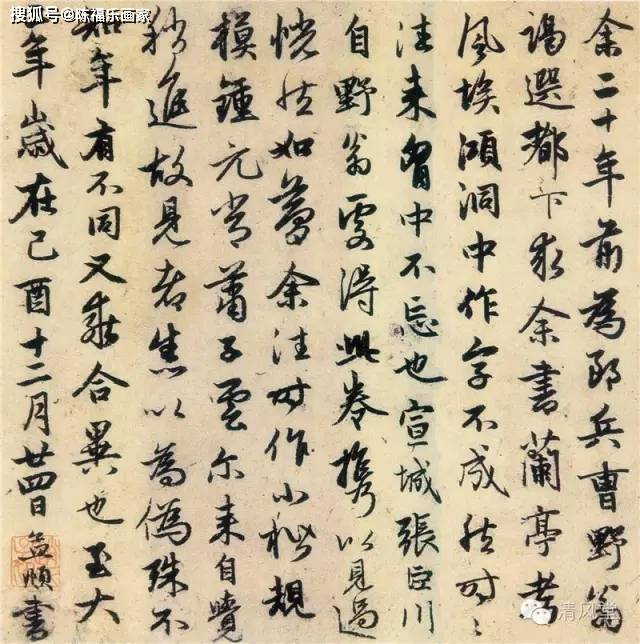 搜狐号@陈福乐画家
余二十年前為郎兵曹野翁
謁選都下求余書蘭亭考
風埃澒洞中作字不成然時〻
往来胷中不忘也宣城張巨川
自野翁處得此卷携以見過
恍然如夢余往時作小楷規
模鍾元常蕭子雲尔来自覺
稍進故見者悉以為偽殊不
知年有不同又乖合異也至大
年歲在己酉十二月廿四日孟頫書
清风堂